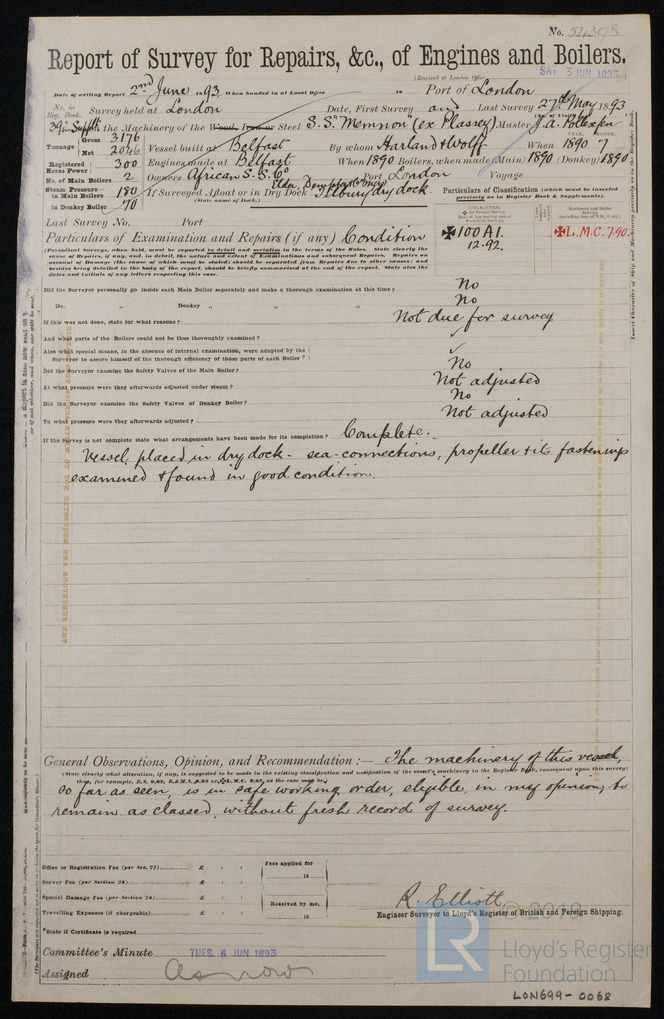 No. 54398
Report of Survey for Repairs, &c., of Engines and Boilers.
(Received at London Office
SAT 3 JUN 1893
Date of writing Report 2nd June 1893 When handed in at Local Office 18 Port of London
No. in Reg. Book. Survey held at London Date, First Survey and Last Survey 27th May 1893
39 in Supplt on the Machinery of the Wood, Iron or Steel S.S. "Memnon" (ex Plassey) Master J.A.
Tonnage Gross 3176 Net 2046 Vessel built at Belfast By whom Harland & Wolff When 1890 7
Registered Horse Power 300 Engines made at Belfast When 1890 Boilers, when made (Main) 1890 (Donkey) 1890
No. of Main Boilers 2 Owners African S.S. Co Port London Voyage
Elder Dempster & Co Mgrs
Steam Pressure in Main Boilers 180 If Surveyed Afloat or in Dry Dock Tilbury dry dock.
(State name of Dock.)
in Donkey Boiler 70
Particulars of Classification (which must be inserted precisely as in Register Book & Supplements).
Last Survey No. Port
Particulars of Examination and Repairs (if any) Condition
✠100A1. 12.92.
✠L.M.C. 7.90.
(Periodical Surveys, when held, must be reported in detail and seriatim in the terms of the Rules. State clearly the
cause of Repairs, if any, and, in detail, the nature and extent of Examinations and subsequent Repairs. Repairs on
account of Damage (the cause of which must be stated) should be separated from Repairs due to other causes; and
besides being detailed in the body of the report, should be briefly summarised at the end of the report. State also the
dates and initials of any letters respecting this case.
Did the Surveyor personally go inside each Main Boiler separately and make a thorough examination at this time? No
Do. " Donkey " " " No
If this was not done, state for what reasons? Not due for survey
And what parts of the Boilers could not be thus thoroughly examined?
Also what special means, in the absence of internal examination, were adopted by the
Surveyor to assure himself of the thorough efficiency of those parts of each Boiler?
Did the Surveyor examine the Safety Valves of the Main Boiler? No
At what pressure were they afterwards adjusted under steam? Not adjusted
Did the Surveyor examine the Safety Valves of Donkey Boiler? No
To what pressure were they afterwards adjusted? Not adjusted
If the Survey is not complete state what arrangements have been made for its completion? Complete.
Vessel placed in dry dock - sea-connections, propeller & its fastenings
examined & found in good condition.
General Observations, Opinion, and Recommendation :— The machinery of this vessel,
(State clearly what alteration, if any, is suggested to be made in the existing classification and notification of the vessel's machinery in the Register Book, consequent upon this survey:
so far as seen, is in safe working order, eligible, in my opinion, to
remain as classed, without fresh record of survey.
Office or Registration Fee (per Sec. 27) £ : : Fees applied for
18
Survey Fee (per Section 28) £ : :
Special Damage Fee (per Section 28) £ : : Received by me,
Travelling Expenses (if chargeable) £ : : 18
*State if Certificate is required
R. Elliott
Engineer Surveyor to Lloyd's Register of British and Foreign Shipping.
Committee's Minute TUES. 6 JUN 1893
Assigned as now
LR
© 2019
Lloyd's Register
Foundation
LON699-0068